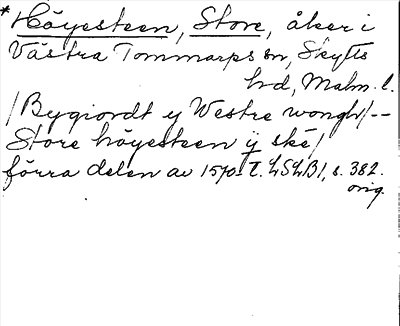 * Höyesteen, Store, åker i
Västra Tommarps sn, Skytts
hd, Malm. l.
/Bygiordt y Westre wongh/--
Store höyesteen ÿ ské/
förra delen av 1570-t. LSLB1, s. 382.
orig.